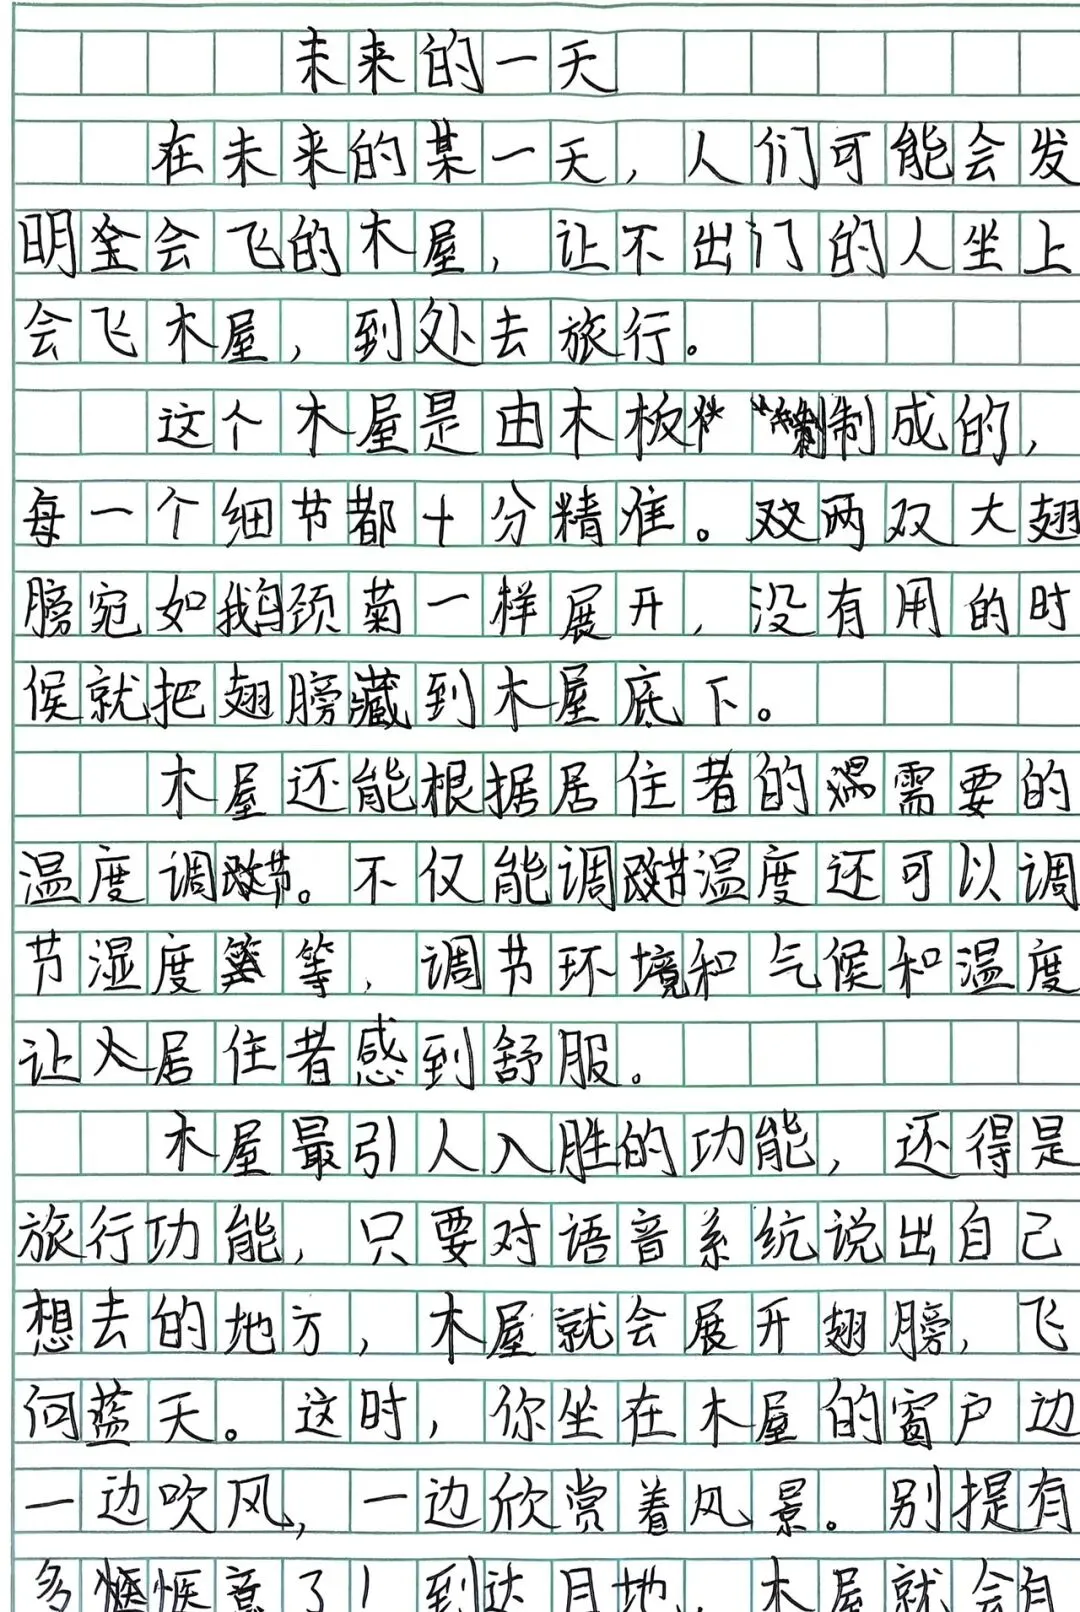 未来的一天
在未来的某一天，人们可能会发
明会飞的木屋，让不出门的人坐上
会飞木屋，到处去旅行。
这个木屋是由木板制成的，
每一个细节都十分精准。两双大翅
膀宛如鹅颈菊一样展开，没有用的时
候就把翅膀藏到木屋底下。
木屋还能根据居住者的需要的
温度调节。不仅能调节温度还可以调
节湿度等，调节环境和气候和温度
让居住者感到舒服。
木屋最引人入胜的功能，还得是
旅行功能，只要对语音系统说出自己
想去的地方，木屋就会展开翅膀，飞
向蓝天。这时，你坐在木屋的窗户边
一边吹风，一边欣赏着风景。别提有
多惬意了！到达目地，木屋就会自